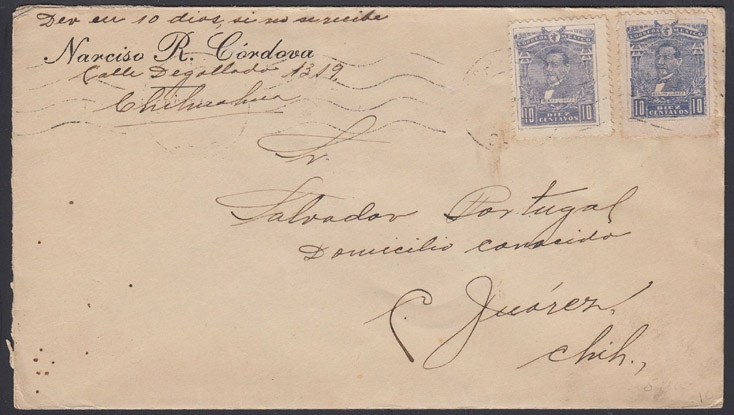 Dev en 10 dias, si no se recibe
Narciso R. Córdova
Calle Degollado 1319.
Chihuahua
Sr.
Salvador Portugal
Domicilio conocido
C. Juárez,
Chih.,
CORREOS MEXICO
10 DIEZ CENTAVOS 10
CORREOS MEXICO
10 DIEZ CENTAVOS 10